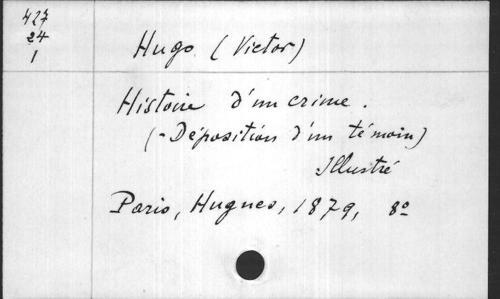 427
24
1
Hugo (Victor)
Histoire d'un crime.
(-Déposition d'un témoin)
Illustré
Paris, Hugues, 1879, 8º